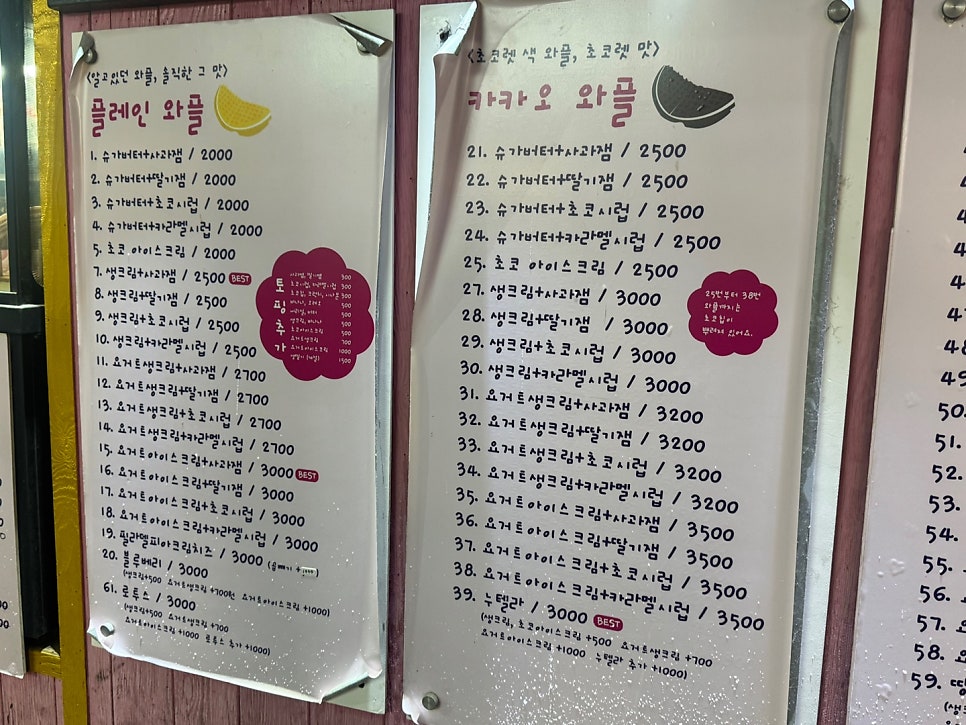 <알고있던 와플, 솔직한 그 맛>
플레인 와플
1. 슈가버터+사과잼 / 2000
2. 슈가버터+딸기잼 / 2000
3. 슈가버터+초코시럽 / 2000
4. 슈가버터+카라멜시럽 / 2000
5. 초코 아이스크림 / 2000
7. 생크림+사과잼 / 2500 BEST
8. 생크림+딸기잼 / 2500
9. 생크림+초코시럽 / 2500
10. 생크림+카라멜시럽 / 2500
11. 요거트생크림+사과잼 / 2700
12. 요거트생크림+딸기잼 / 2700
13. 요거트생크림+초코시럽 / 2700
14. 요거트생크림+카라멜시럽 / 2700
15. 요거트아이스크림+사과잼 / 3000 BEST
16. 요거트아이스크림+딸기잼 / 3000
17. 요거트아이스크림+초코시럽 / 3000
18. 요거트아이스크림+카라멜시럽 / 3000
19. 필라델피아크림치즈 / 3000
20. 블루베리 / 3000
(생크림+500 요거트생크림 +700원 요거트아이스크림 +1000)
61. 로투스 / 3000
(생크림+500 요거트생크림 +700
요거트아이스크림 +1000 로투스 추가 +1000)
토핑추가
사과잼, 딸기잼 300
초코아이스크림 500
요거트생크림 700
요거트아이스크림 1000
1500
<초코렛 색 와플, 초코렛 맛>
카카오 와플
21. 슈가버터+사과잼 / 2500
22. 슈가버터+딸기잼 / 2500
23. 슈가버터+초코시럽 / 2500
24. 슈가버터+카라멜시럽 / 2500
25. 초코 아이스크림 / 2500
27. 생크림+사과잼 / 3000
28. 생크림+딸기잼 / 3000
29. 생크림+초코시럽 / 3000
30. 생크림+카라멜시럽 / 3000
31. 요거트생크림+사과잼 / 3200
32. 요거트생크림+딸기잼 / 3200
33. 요거트생크림+초코시럽 / 3200
34. 요거트생크림+카라멜시럽 / 3200
35. 요거트아이스크림+사과잼 / 3500
36. 요거트아이스크림+딸기잼 / 3500
37. 요거트아이스크림+초코시럽 / 3500
38. 요거트아이스크림+카라멜시럽 / 3500
39. 누텔라 / 3000 BEST
(생크림, 초코아이스크림 +500 요거트생크림 +700
요거트아이스크림 +1000 누텔라 추가 +1000)
25번부터 38번
와플까지는
초코칩이
뿌려져 있어요.
49.
50.
51.
52.
53.
54.
55.
56.
57.
58.
59.